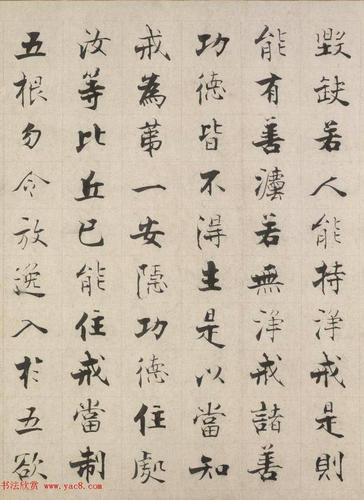 毀缺若人能持淨戒是則
能有善灋若無淨戒諸善
功德皆不得生是以當知
戒為第一安隱功德住處
汝等比丘已能住戒當制
五根勿令放逸入於五欲
书法欣赏 www.yac8.com